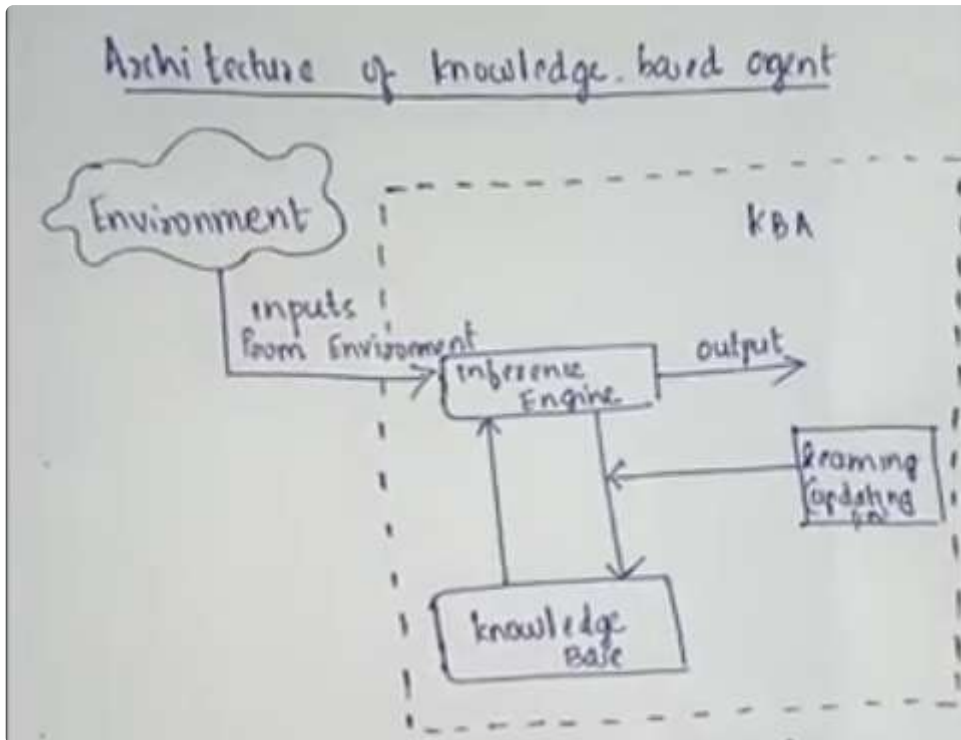 Architecture of knowledge-based agent
Environment
KBA
inputs
from Enviroment
output
inference
Engine
learning
(updating
knowledge
Base